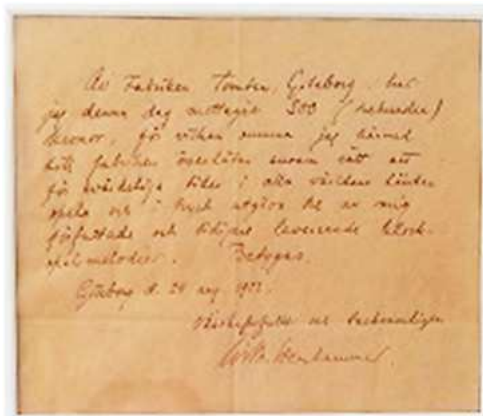 Av Fabriken Tomten, Göteborg, har
jag denna dag mottagit 500 (femhundra)
kronor, för vilken summa jag härmed
till fabriken överlåter ensam rätt att
för evärdeliga tider i alla världens länder
spela och i tryck utgiva de av mig
författade och tidigare levererade klock-
spelmelodier. Betygas.
Göteborg d. 24 1922.
högaktningsfullt och
Wilh. Stenhammar.